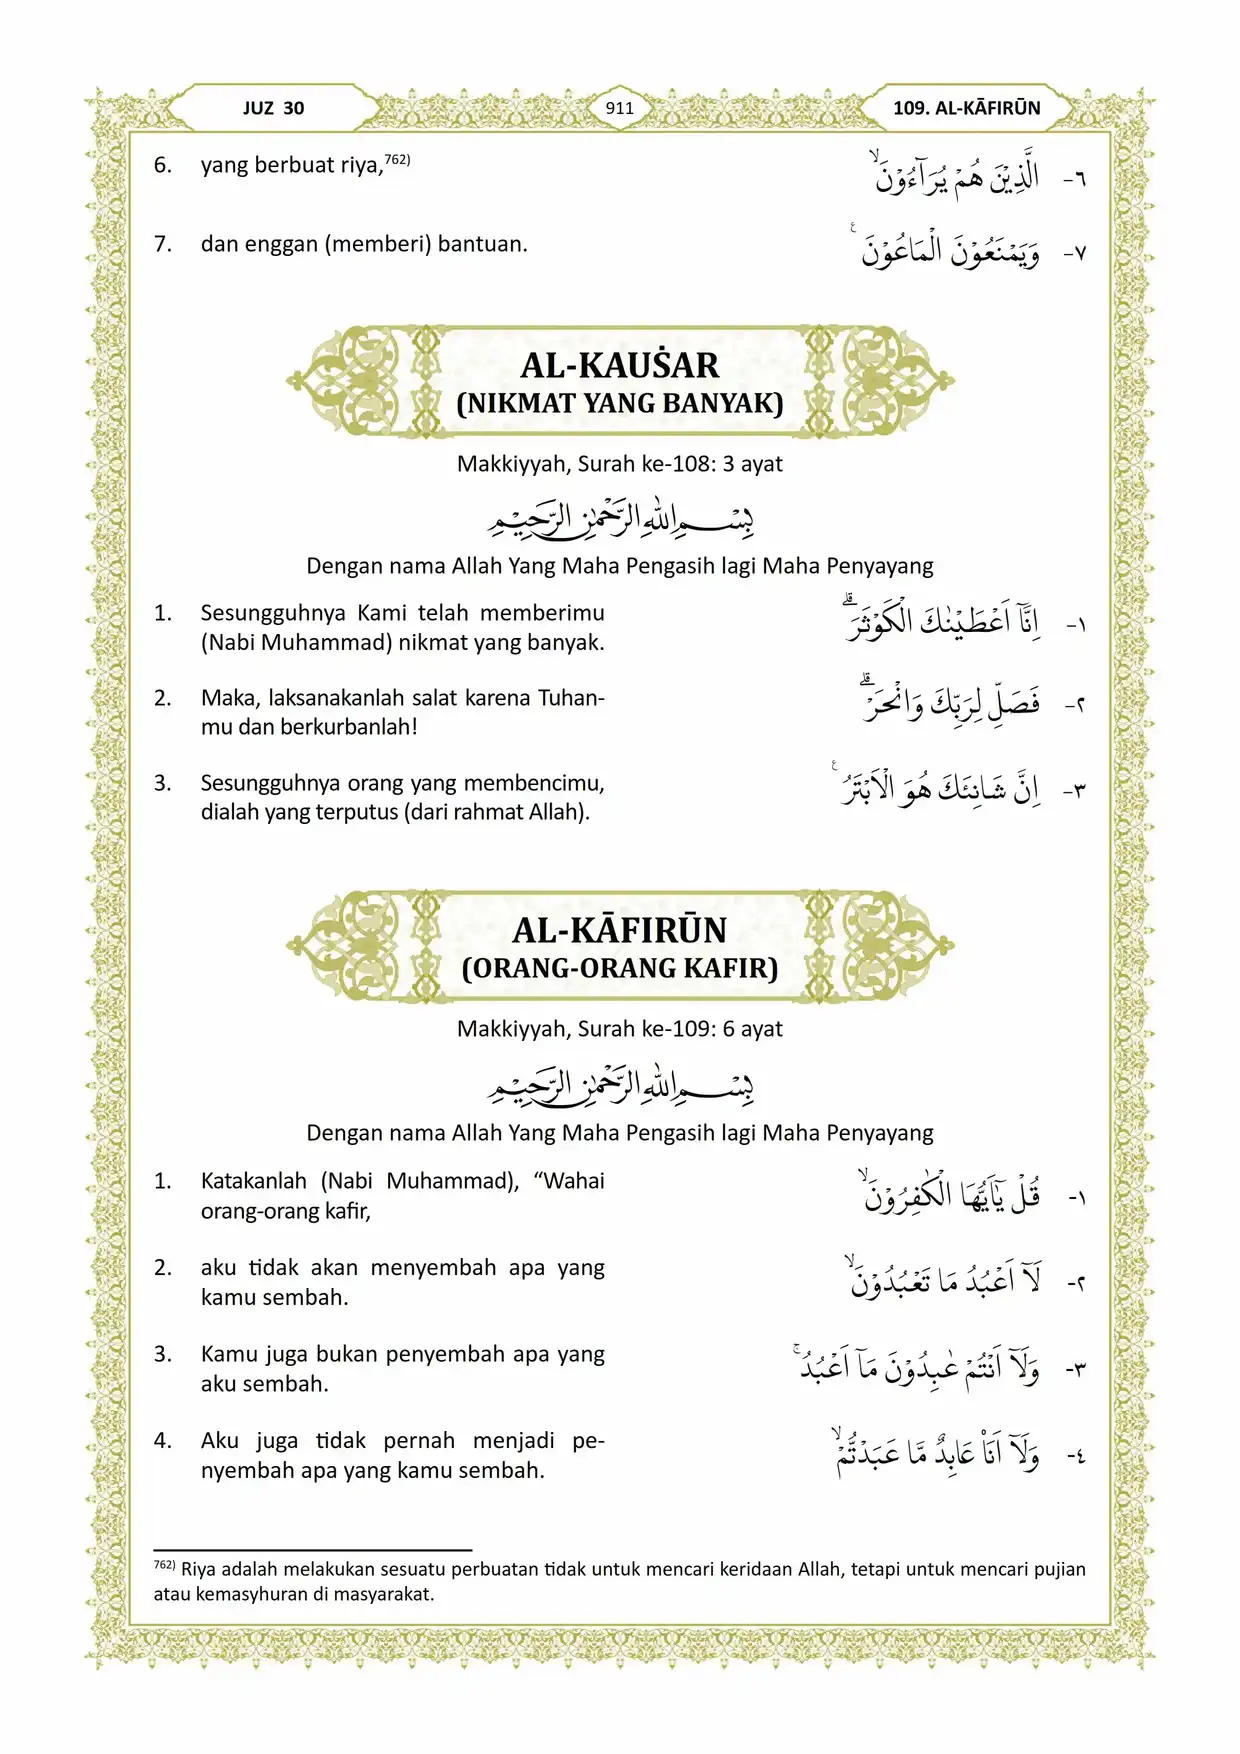 JUZ 30
911
109. AL-KĀFIRŪN
6. yang berbuat riya,⁷⁶²⁾
٦- الَّذِيْنَ هُمْ يُرَاۤءُوْنَۙ
7. dan enggan (memberi) bantuan.
٧- وَيَمْنَعُوْنَ الْمَاعُوْنَ ࣖ
AL-KAUṠAR
(NIKMAT YANG BANYAK)
Makkiyyah, Surah ke-108: 3 ayat
بِسْمِ اللّٰهِ الرَّحْمٰنِ الرَّحِيْمِ
Dengan nama Allah Yang Maha Pengasih lagi Maha Penyayang
1. Sesungguhnya Kami telah memberimu
(Nabi Muhammad) nikmat yang banyak.
١- اِنَّآ اَعْطَيْنٰكَ الْكَوْثَرَۗ
2. Maka, laksanakanlah salat karena Tuhan-
mu dan berkurbanlah!
٢- فَصَلِّ لِرَبِّكَ وَانْحَرْۗ
3. Sesungguhnya orang yang membencimu,
dialah yang terputus (dari rahmat Allah).
٣- اِنَّ شَانِئَكَ هُوَ الْاَبْتَرُ ࣖ
AL-KĀFIRŪN
(ORANG-ORANG KAFIR)
Makkiyyah, Surah ke-109: 6 ayat
بِسْمِ اللّٰهِ الرَّحْمٰنِ الرَّحِيْمِ
Dengan nama Allah Yang Maha Pengasih lagi Maha Penyayang
1. Katakanlah (Nabi Muhammad), “Wahai
orang-orang kafir,
١- قُلْ يٰٓاَيُّهَا الْكٰفِرُوْنَۙ
2. aku tidak akan menyembah apa yang
kamu sembah.
٢- لَآ اَعْبُدُ مَا تَعْبُدُوْنَۙ
3. Kamu juga bukan penyembah apa yang
aku sembah.
٣- وَلَآ اَنْتُمْ عٰبِدُوْنَ مَآ اَعْبُدُۚ
4. Aku juga tidak pernah menjadi pe-
nyembah apa yang kamu sembah.
٤- وَلَآ اَنَا۠ عَابِدٌ مَّا عَبَدْتُّمْۙ
⁷⁶²⁾ Riya adalah melakukan sesuatu perbuatan tidak untuk mencari keridaan Allah, tetapi untuk mencari pujian
atau kemasyhuran di masyarakat.